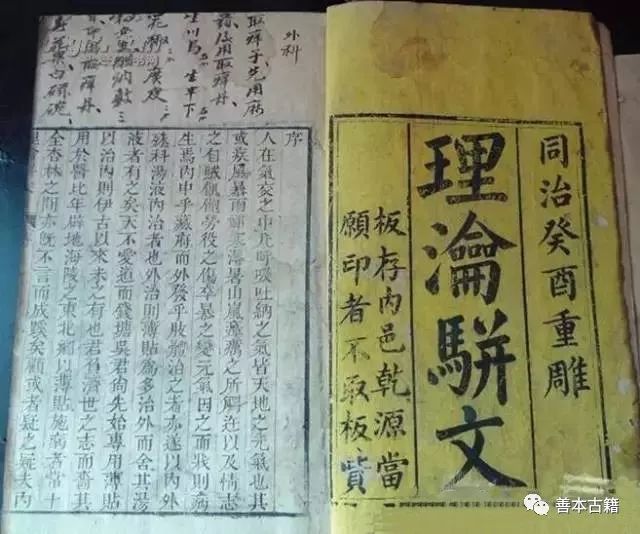 同治癸酉重雕
理瀹駢文
板存内邑乾源當
願印者不取板貲
外科
序
人在氣交之中凡呼吸吐納之氣皆天地之元氣也其
或疾風暴雨鬱寒溽暑山嵐瘴癘之所觸迕以及情志
之自賊飢飽勞役之傷卒暴之變元氣因之而戕則病
生焉内中乎藏府而外發乎肢體治之者亦遂以内外
殊科湯液内治者也外治則薄貼爲多治外而舍其湯
液者有之矣天不愛道而錢塘吳君尚先始專用薄貼
以治内則伊古以來未之有也君有濟世之志而蘄其
用於醫比年辟地海陵之東北鄉以薄貼施病者嘗十
全杏林之間亦既不言而成蹊矣顧或者疑之疑夫内
善本古籍